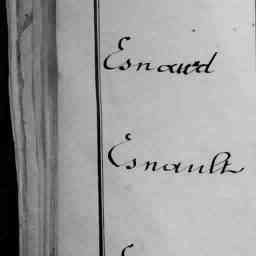 Esnard
Esnault